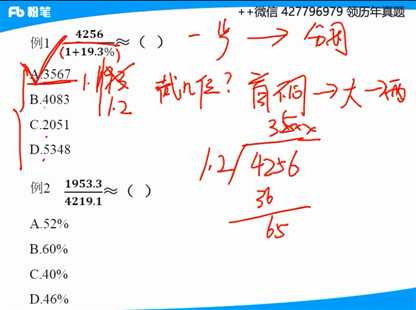 粉笔
++微信 427796979 领历年真题
例1 4256/(1+19.3%)≈( )
一步 → 分母
A.3567
1.2
截几位? 首不同 → 大 → 两
B.4083
C.2051
D.5348
1.2 4256
36
65
例2 1953.3/4219.1≈( )
A.52%
B.60%
C.40%
D.46%